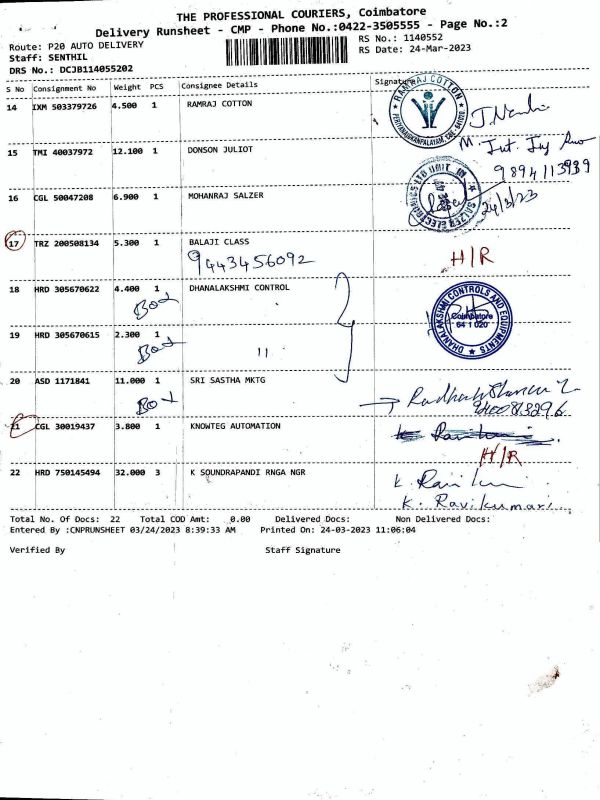 THE PROFESSIONAL COURIERS, Coimbatore
Delivery Runsheet - CMP - Phone No.:0422-3505555 - Page No.:2
Route: P20 AUTO DELIVERY
RS No.: 1140552
Staff: SENTHIL
RS Date: 24-Mar-2023
DRS No.: DCJB114055202
S No Consignment No Weight PCS Consignee Details Signature
14 IXM 503379726 4.500 1 RAMRAJ COTTON
RAMRAJ COTTON
15 TMI 40037972 12.100 1 DONSON JULIOT
9894113939
16 CGL 50047208 6.900 1 MOHANRAJ SALZER
24/3/23
17 TRZ 200508134 5.300 1 BALAJI CLASS
9443456092
H/R
18 HRD 305670622 4.400 1 DHANALAKSHMI CONTROL
Box
DHANALAKSHMI CONTROLS AND EQUIPMENTS
Coimbatore
641 020
19 HRD 305670615 2.300 1
Box
"
20 ASD 1171841 11.000 1 SRI SASTHA MKTG
Box
21 CGL 30019437 3.800 1 KNOWTEG AUTOMATION
H/R
22 HRD 750145494 32.000 3 K SOUNDRAPANDI RNGA NGR
K. Ravikumar
Total No. Of Docs: 22 Total COD Amt: 0.00 Delivered Docs: Non Delivered Docs:
Entered By :CNPRUNSHEET 03/24/2023 8:39:33 AM Printed On: 24-03-2023 11:06:04
Verified By Staff Signature